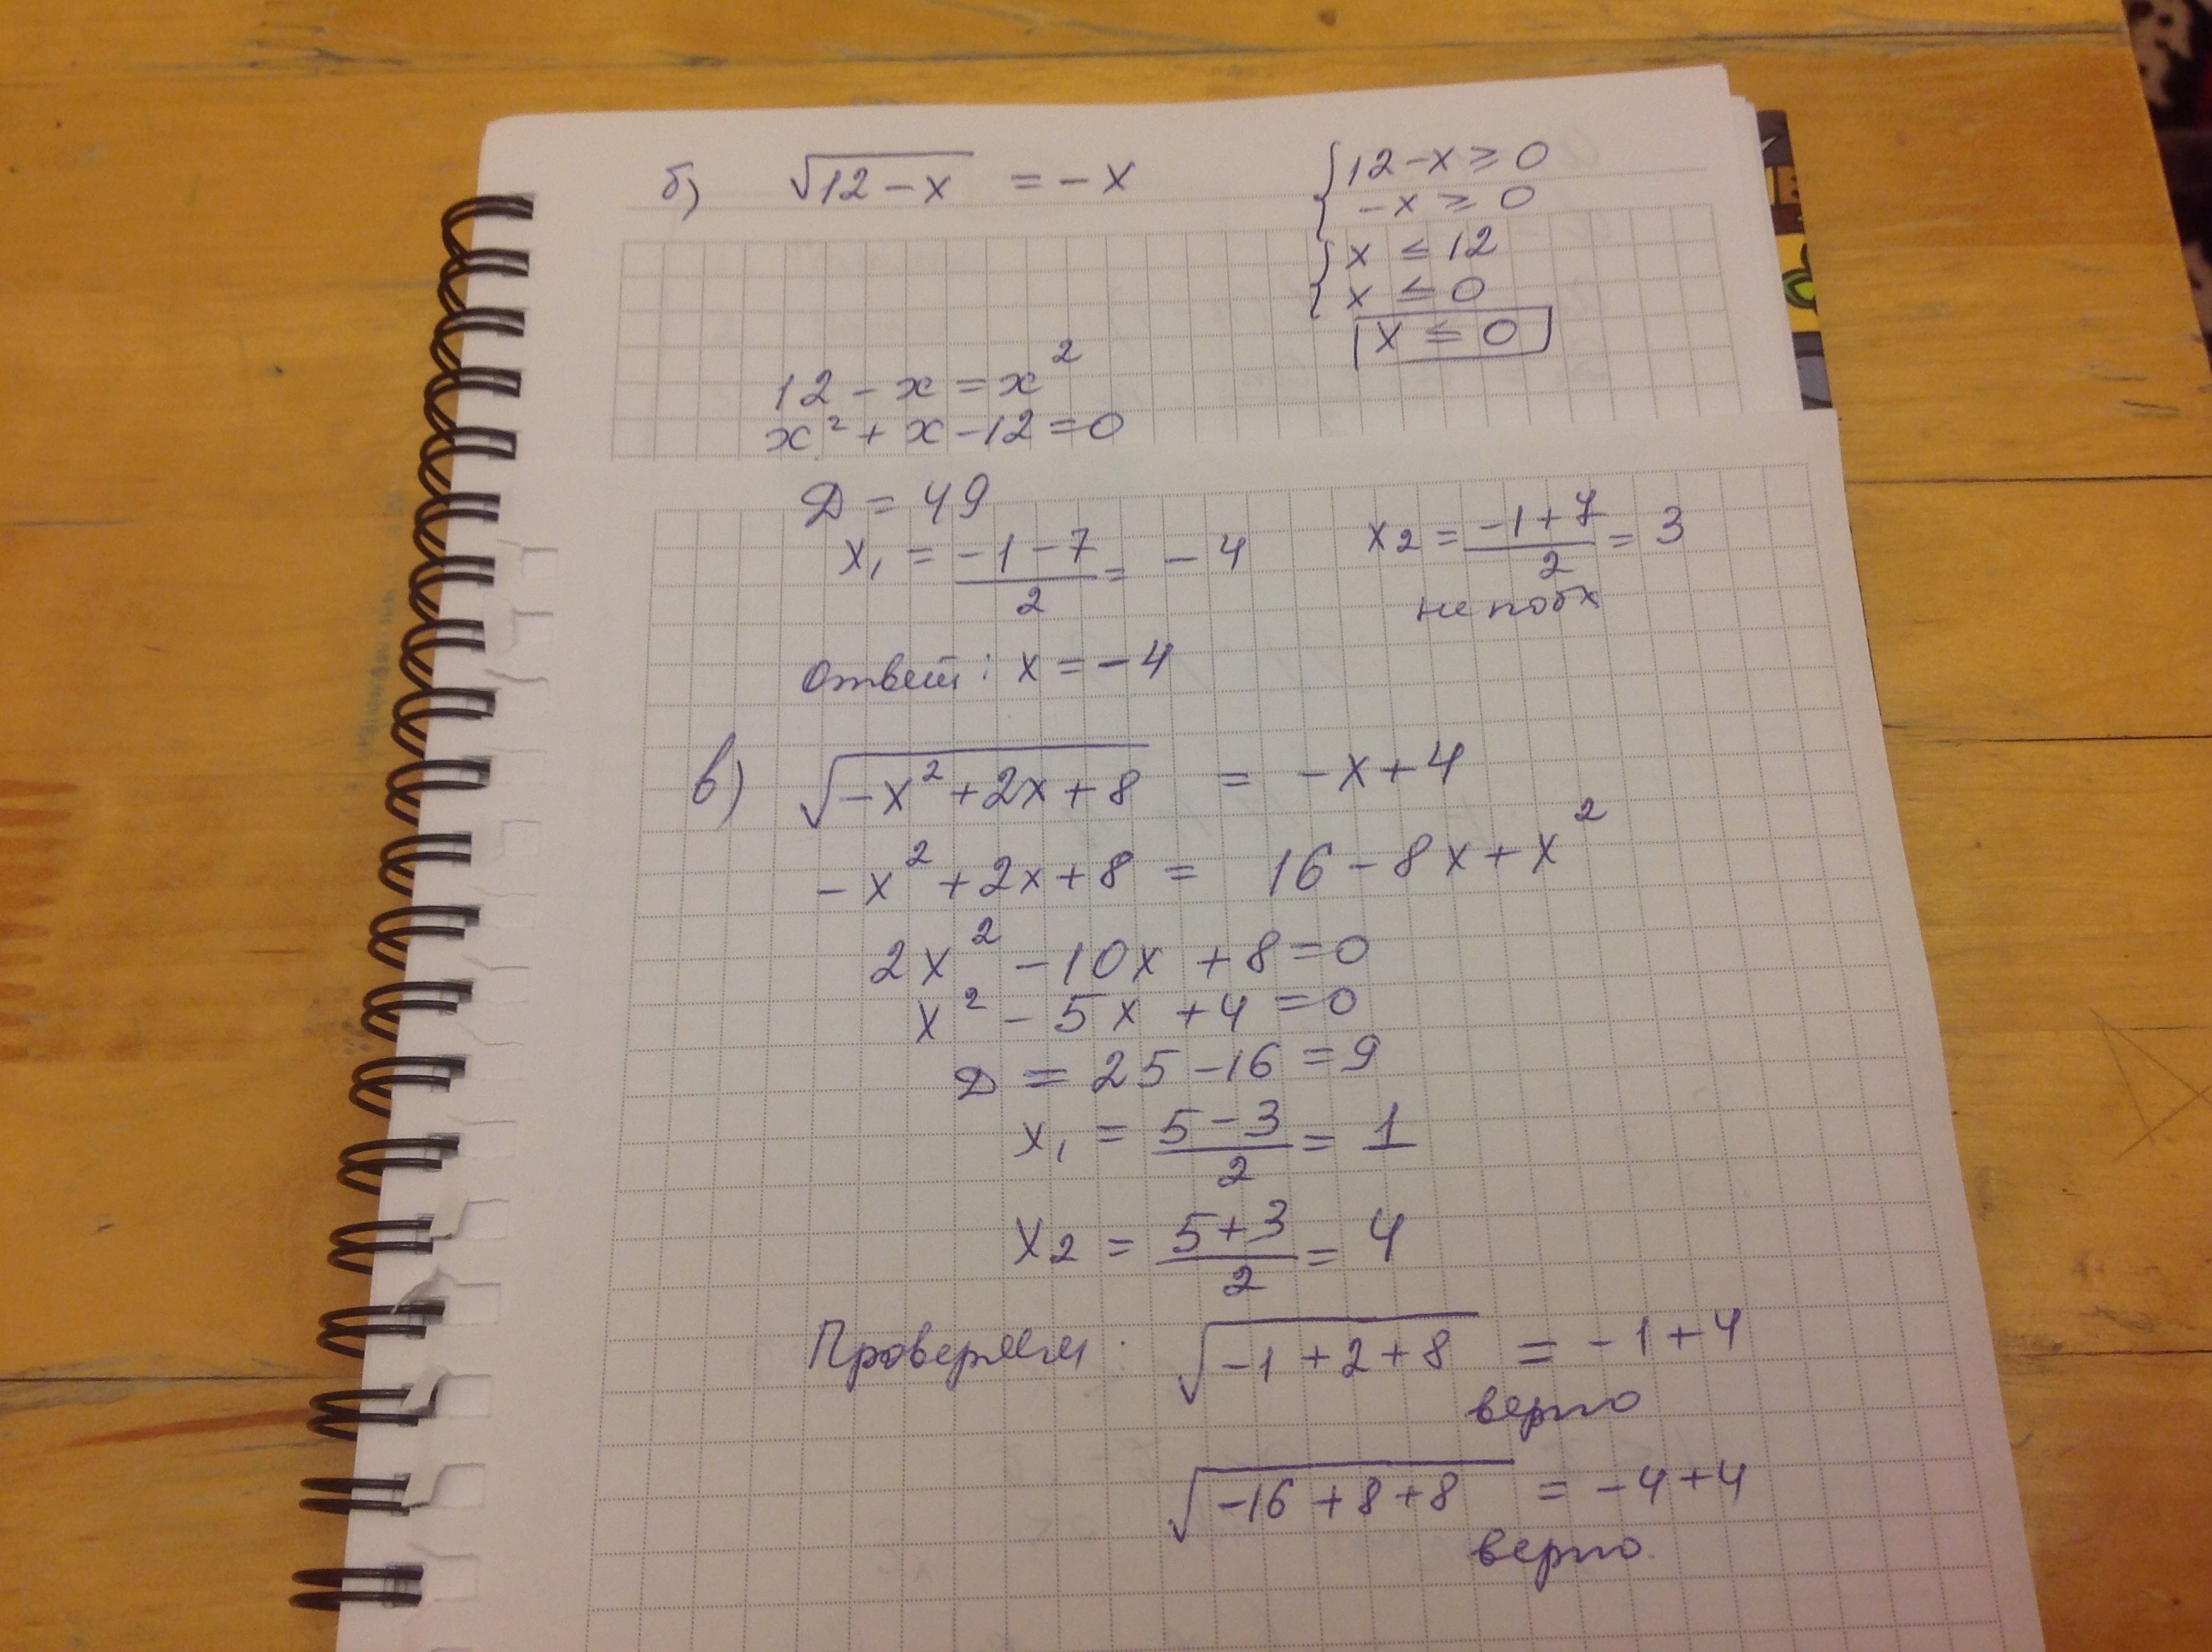 б) √(12-x) = -x
{12-x ≥ 0
-x ≥ 0
{x ≤ 12
x ≤ 0
x ≤ 0
12 - x = x²
x² + x - 12 = 0
D = 49
x₁ = (-1-7)/2 = -4 x₂ = (-1+7)/2 = 3
не подх
Ответ: x = -4
в) √(-x²+2x+8) = -x+4
-x²+2x+8 = 16-8x+x²
2x² - 10x + 8 = 0
x² - 5x + 4 = 0
D = 25-16 = 9
x₁ = (5-3)/2 = 1
x₂ = (5+3)/2 = 4
Проверяем: √(-1+2+8) = -1+4
верно
√(-16+8+8) = -4+4
верно.